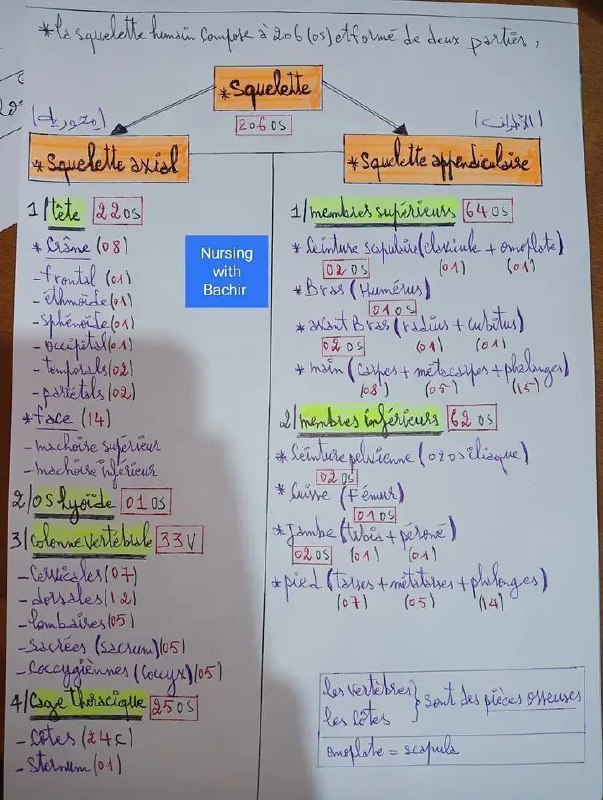 * Le squelette humain compose à 206 (os) et formé de deux parties,
* Squelette
206 os
(محورية)
(الأطراف)
* Squelette axial
1/ tête 22 os
* Crâne (08)
- frontal (01)
- éthmoïde (01)
- sphénoïde (01)
- occipital (01)
- temporals (02)
- pariétals (02)
* face (14)
- machoire supérieur
- machoire inférieur
2/ os hyoïde 01 os
3/ Colonne vertébrale 33 V
- Cervicales (07)
- dorsales (12)
- lombaires (05)
- sacrées (sacrum) (05)
- Coccygiènnes (coccyx) (05)
4/ Cage thoracique 25 os
- Côtes (24c)
- sternum (01)
Nursing
with
Bachir
* Squelette appendiculaire
1/ membres supérieurs 64 os
* Ceinture scapulaire (clavicule + omoplate)
02 os (01) (01)
* Bras (Humérus)
01 os
* avant Bras (radius + cubitus)
02 os (01) (01)
* main (carpes + métacarpes + phalanges)
(08) (05) (15)
2/ membres inférieurs 62 os
* Ceinture pelvienne (02 os iliaque)
02 os
* Cuisse (fémur)
01 os
* Jambe (tibia + péroné)
02 os (01) (01)
* pied (tarses + métatarses + phalanges)
(07) (05) (14)
les vertèbres } sont des pièces osseuses
les côtes
omoplate = scapula